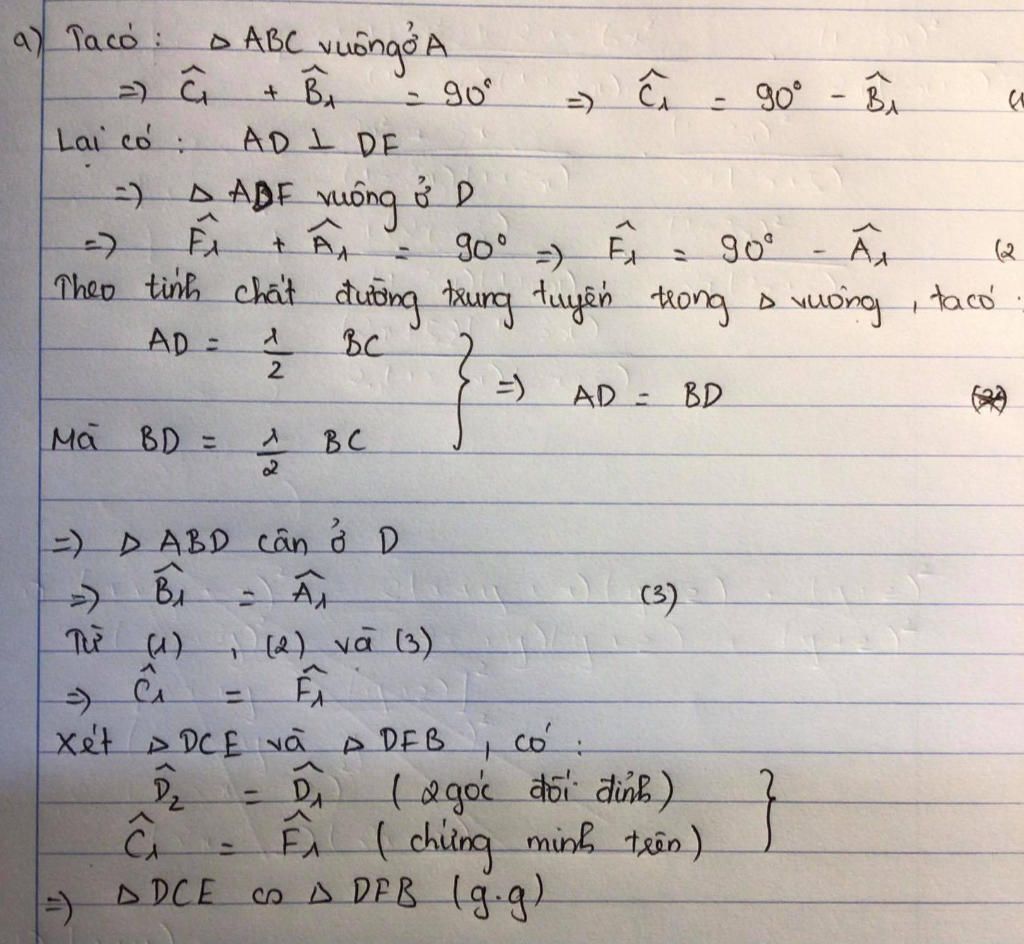 a) Ta có : Δ ABC vuông ở A
=> Ĉ₁ + B̂₁ = 90° => Ĉ₁ = 90° - B̂₁ (1
Lại có : AD ⊥ DF
=> Δ ADF vuông ở D
=> F̂₁ + Â₁ = 90° => F̂₁ = 90° - Â₁ (2
Theo tính chất đường trung tuyến trong Δ vuông , ta có :
AD = 1/2 BC
=> AD = BD
Mà BD = 1/2 BC
=> Δ ABD cân ở D
=> B̂₁ = Â₁ (3)
Từ (1) , (2) và (3)
=> Ĉ₁ = F̂₁
Xét Δ DCE và Δ DFB , có :
D̂₂ = D̂₁ ( 2 góc đối đỉnh )
Ĉ₁ = F̂₁ ( chứng minh trên )
=> Δ DCE ∽ Δ DFB (g.g)